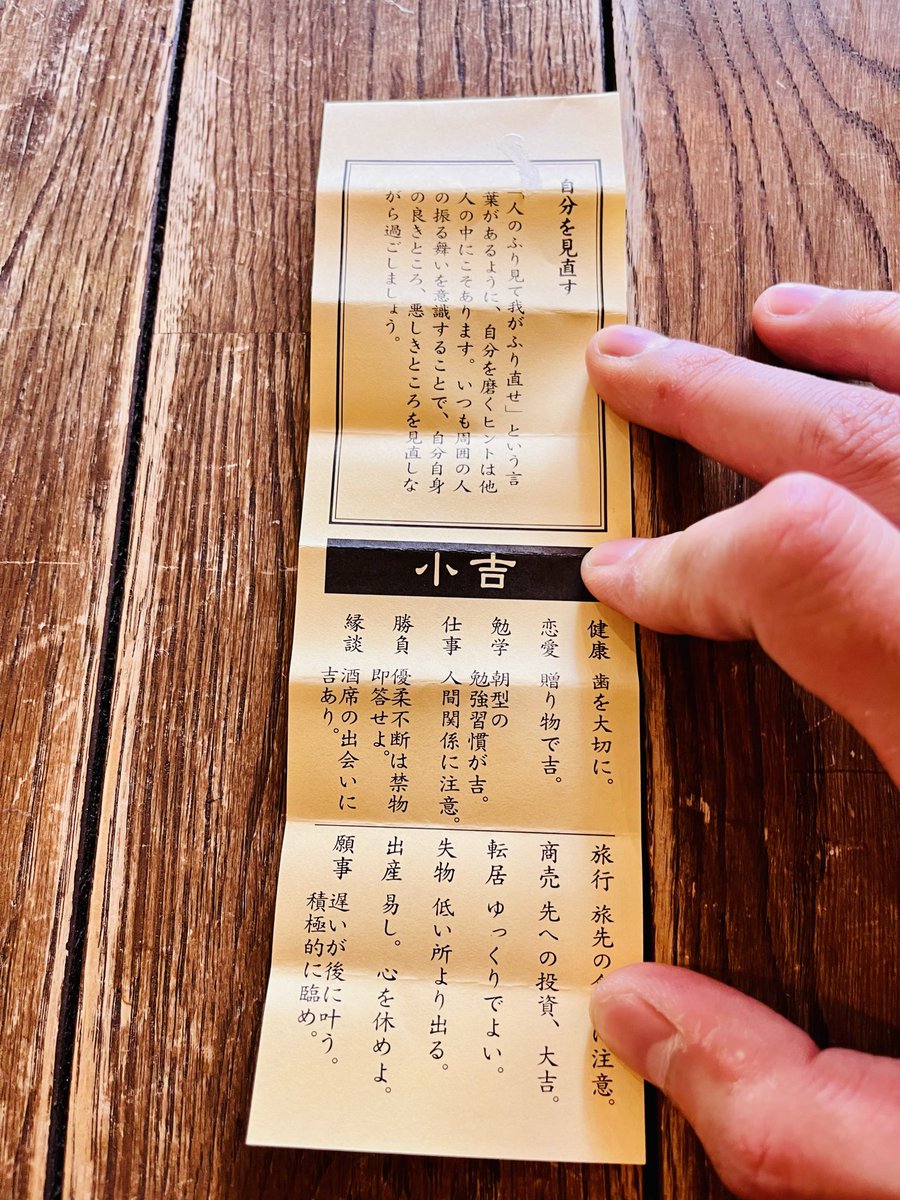 自分を見直す
「人のふり見て我がふり直せ」という言
葉があるように、自分を磨くヒントは他
人の中にこそあります。いつも周囲の人
の振る舞いを意識することで、自分自身
の良きところ、悪しきところを見直しな
がら過ごしましょう。
小吉
健康 歯を大切に。
恋愛 贈り物で吉。
勉学 朝型の
勉強習慣が吉。
仕事 人間関係に注意。
勝負 優柔不断は禁物
即答せよ。
縁談 酒席の出会いに
吉あり。
旅行 旅先の 注意。
商売 先への投資、大吉。
転居 ゆっくりでよい。
失物 低い所より出る。
出産 易し。心を休めよ。
願事 遅いが後に叶う。
積極的に臨め。